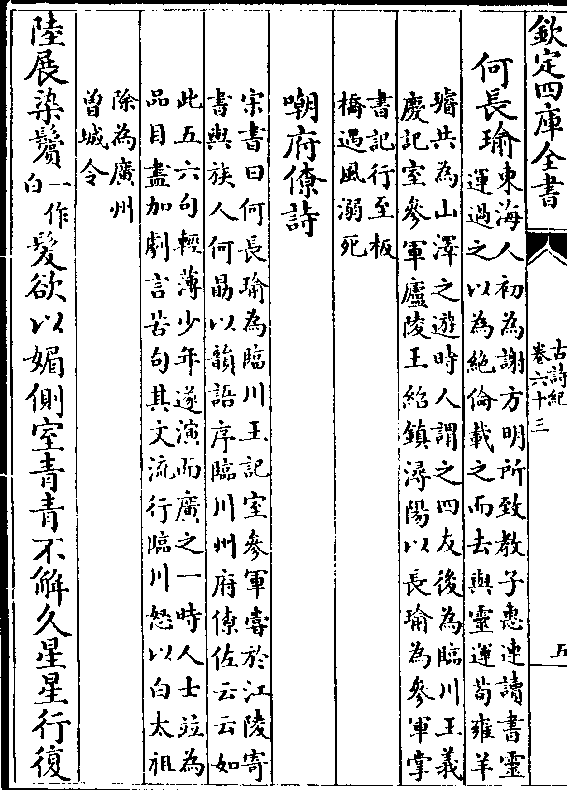 欽定四庫全書
古詩紀
卷六十三
五
何長瑜
東海人初為謝方明所致教子惠連讀書靈
運過之以為絶倫載之而去與靈運荀雍羊
璿共為山澤之遊時人謂之四友後為臨川王義
慶記室參軍廬陵王紹鎮潯陽以長瑜為參軍掌
書記行至板
橋遇風溺死
嘲府僚詩
宋書曰何長瑜為臨川王記室參軍嘗於江陵寄
書與族人何勗以韻語序臨川州府僚佐云云如
此五六句輕薄少年遂演而廣之一時人士竝為
品目盡加劇言苦句其文流行臨川怒以白太祖
除為廣州
曽城令
陸展染鬢
一作
白
髮欲以媚側室青青不解久星星行復